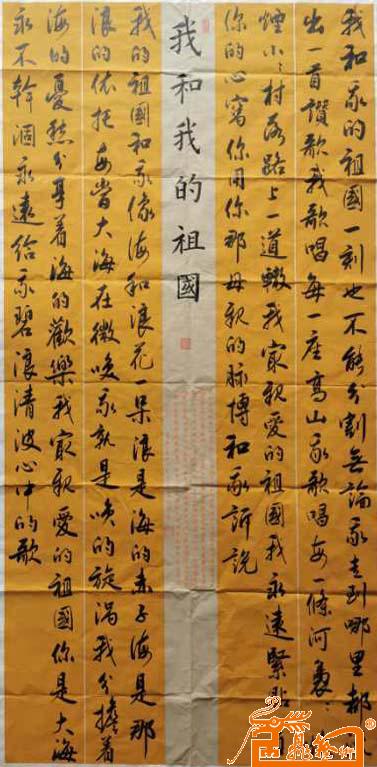 我和我的祖國一刻也不能分割無論我走到哪里都
出一首讚歌我歌唱每一座高山我歌唱每一條河裊〻
煙小〻村落路上一道轍我最親愛的祖國我永遠緊貼
你的心窩你用你那母親的脉搏和我訴說
我和我的祖國
我的祖國和我像海和浪花一朵浪是海的赤子海是那
浪的依托每當大海在微咲我就是咲的旋渦我分擔着
海的憂愁分享着海的歡樂我最親愛的祖國你是大海
永不幹涸永遠給我碧浪清波心中的歌